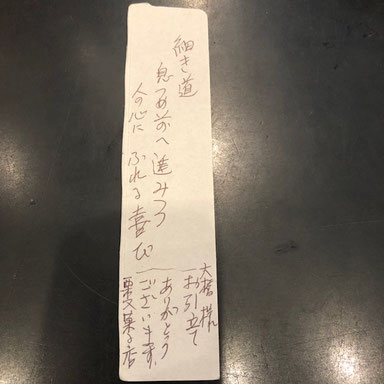 細き道
息つめ前へ進みつつ
人の心に ふれる喜び
様
お引立て
ありがとう
ございます。
菓子店